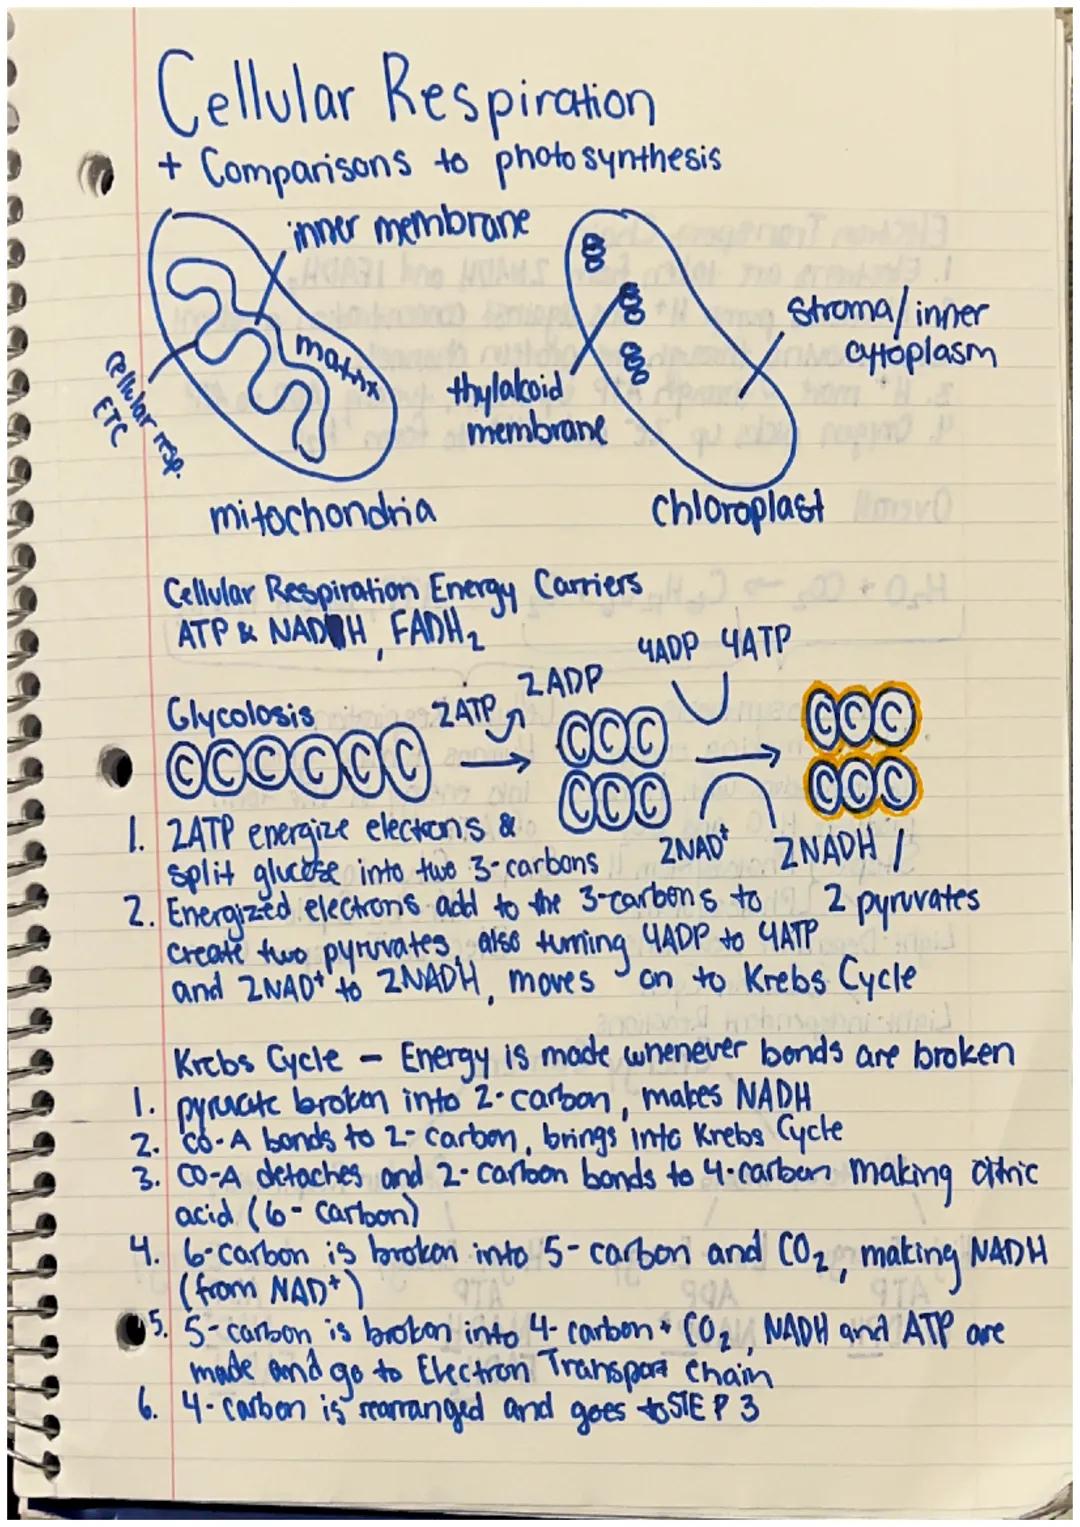 Cellular Respiration
+ Comparisons to photosynthesis
inner membrane
matrix
cellular resp.
ETC
mitochondria
thylakoid
membrane
stroma/inner
cytoplasm
chloroplast
Cellular Respiration Energy Carriers
ATP & NADH, FADH₂
Glycolosis
2ATP
2ADP
4ADP 4ATP
CCCCCC
CCC
CCC
CCC
CCC
2NAD⁺
2NADH /
2 pyruvates
1. 2ATP energize electrons &
split glucose into two 3-carbons
2. Energized electrons add to the 3-carbons to
create two pyruvates, also turning 4ADP to 4ATP
and 2NAD⁺ to 2NADH, moves on to Krebs Cycle
Krebs Cycle - Energy is made whenever bonds are broken
1. pyruvate broken into 2-carbon, makes NADH
2. CO-A bonds to 2-carbon, brings into Krebs Cycle
3. CO-A detaches and 2-carbon bonds to 4-carbon making citric
acid (6-carbon)
4. 6-carbon is broken into 5-carbon and CO₂, making NADH
(from NAD⁺)
5. 5-carbon is broken into 4-carbon + CO₂, NADH and ATP are
made and go to Electron Transport Chain
6. 4-carbon is rearranged and goes to STEP 3